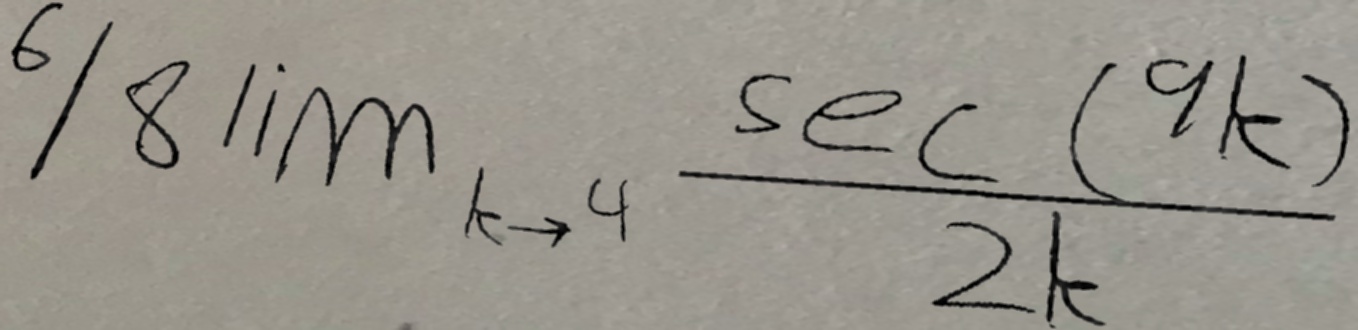 6/8 lim_{k→4} \frac{sec(9k)}{2k}